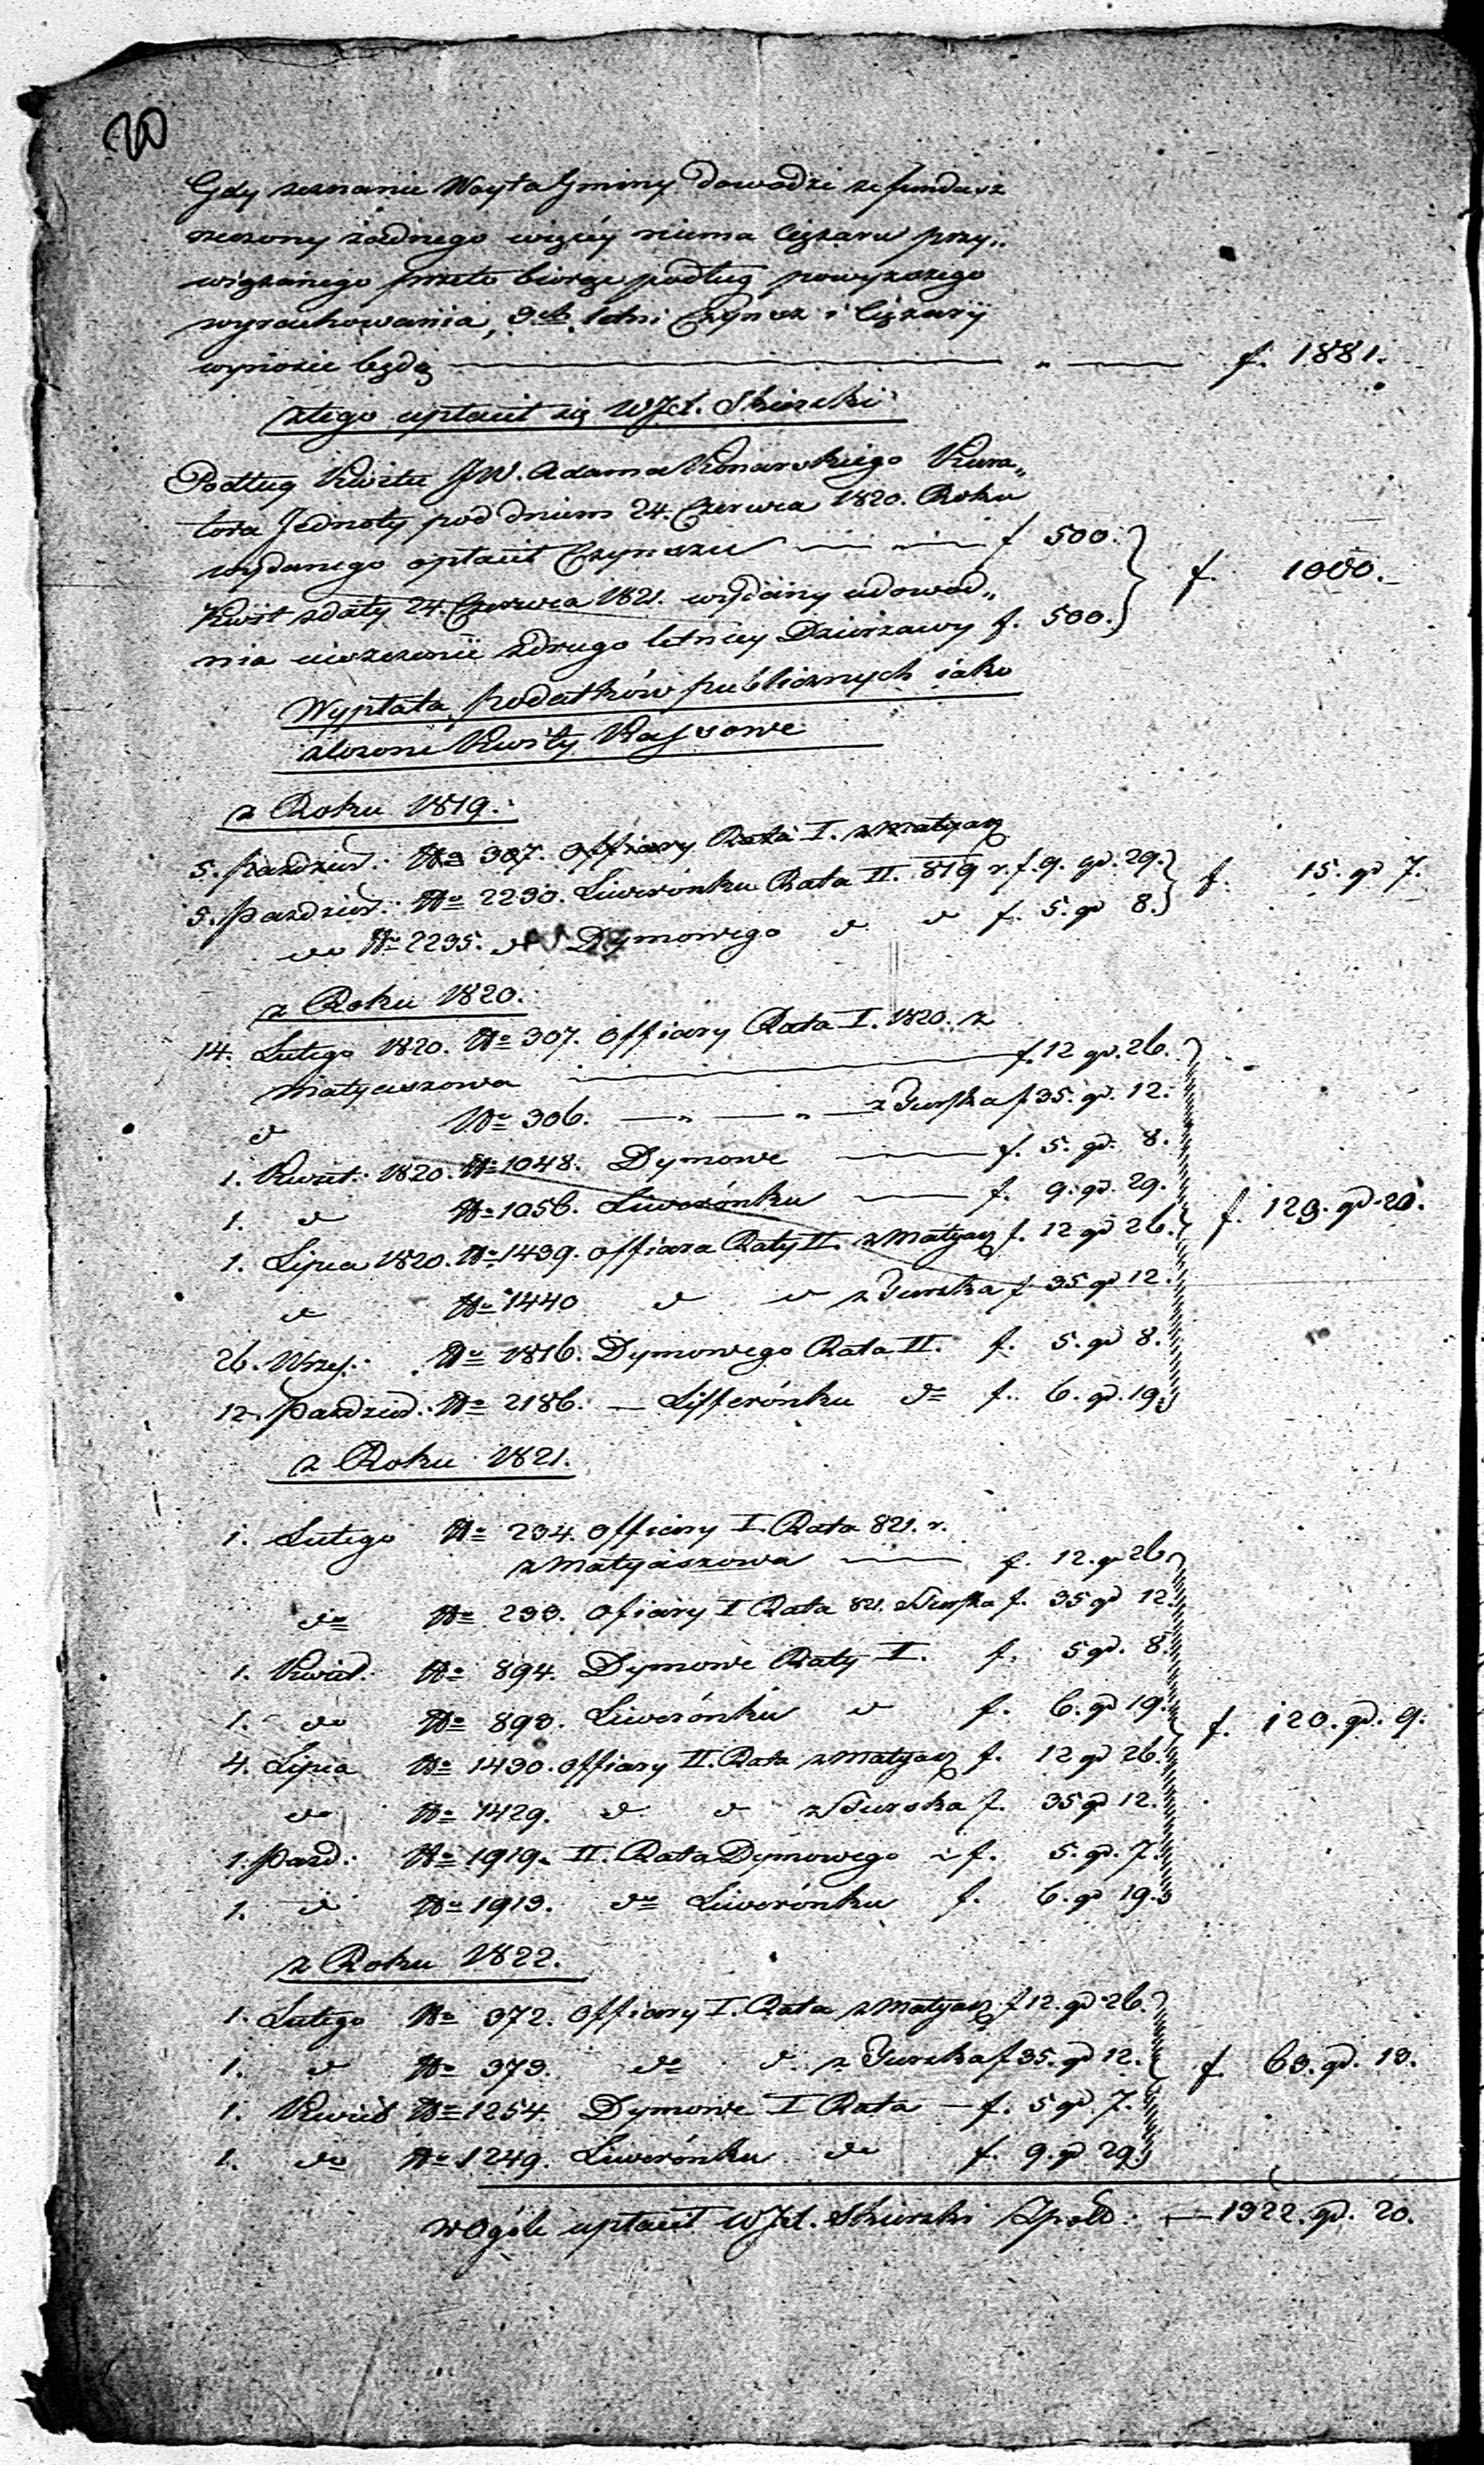 20
Gdy zeznanie Woyta Gminy dowodzi ze fundusz
rzeczony żadnego więcéy niema Ciężaru przy„
wiązanego przeto biorąc podług powyższego
wyrachowania, 3ch letni Czynsz i Ciężary
wynosić będą — „ — f. 1881.
z tego upłacił się WJX. Skierski
Podług Kwitu JW. Adama Konarskiego Kura„
tora Jednoty pod dniem 24. Czerwca 1820. Roku
wydanego opłacił Czynszu — „ — f 500. } f. 1000.
Kwit z daty 24. Czerwca 1821. wydany udowod„
nia uiszczenie z drugo letniey Dzierzawy f. 500.
Wypłata podatków publicznych iako
złożone Kwity Kassowe
z Roku 1819.
5. Pazdzier: No 307. Offiary Rata I. z Matyasz
5. Pazdzier: No 2230. Liwerónku Rata II. 819 r. f. 9. gr. 29. } f. 15. gr 7.
do No 2235. do Dymowego d d f. 5. gr 8.
z Roku 1820.
14. Lutego 1820. No 307. Offiary Rata I. 1820. z
Matyaszowa — f. 12 gr. 26.
d No 306. — „ — „ — z Turska f 35. gr. 12.
1. Kwiet: 1820. No 1048. Dymowe — f. 5. gr. 8.
1. d No 1056. Liwerónku — f. 9. gr. 29. } f. 123. gr. 20.
1. Lipca 1820. No 1439. Offiara Raty II. z Matyasz f. 12 gr 26.
d No 1440 d d z Turska f 35 gr 12.
26. Wrześ: No 1816. Dymowego Rata II. f. 5. gr 8.
12. Pazdzier: No 2186. — Lifferónku do f. 6. gr. 19.
z Roku 1821.
1. Lutego No 234. Offiary I. Rata 821. r.
z Matyaszowa — f. 12. gr 26.
do No 233. Ofiary I Rata 821. z Turska f. 35 gr 12.
1. Kwiet. No 894. Dymowe Raty I. f. 5 gr. 8.
1. do No 893. Liwerónku d f. 6. gr 19. } f. 120. gr. 9.
4. Lipca No 1430. Offiary II. Rata z Matyasz f. 12 gr 26.
do No 1429. d d z Turska f. 35 gr 12.
1. Pazd: No 1919. II. Rata Dymowego f. 5. gr. 7.
1. d No 1913. do Liwerónku f. 6. gr 19.
z Roku 1822.
1. Lutego No 372. Offiary I. Rata z Matyasz f 12. gr 26.
1. d No 373. do d z Turska f 35. gr 12. } f. 63. gr. 13.
1. Kwiet No 1254. Dymowe I Rata — f. 5 gr 7.
1. do No 1249. Liwerónku do f. 9. gr 29.
w Ogóle upłacił WJX. Skierski — 1322. gr. 20.